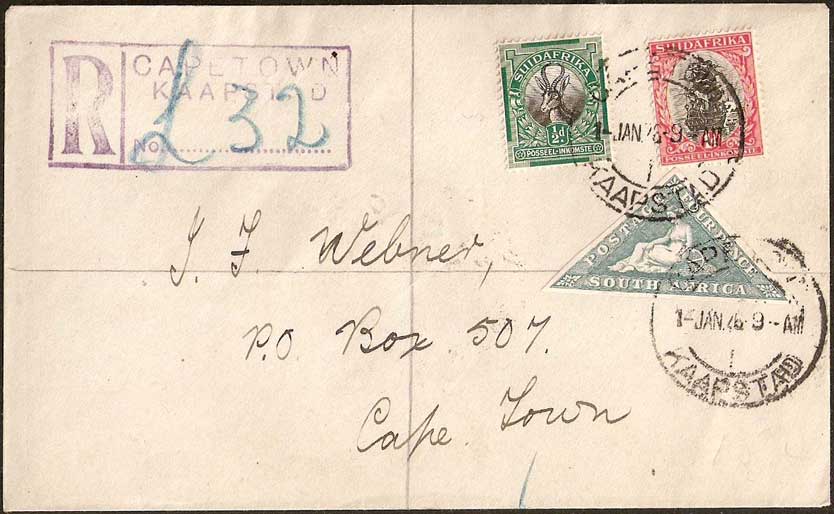 R
CAPETOWN
KAAPSTAD
No.
£ 32
SUIDAFRIKA
½d
POSSEEL-INKOMSTE
SUIDAFRIKA
POSSEEL-INKOMSTE
1-JAN.26-9-AM
1
KAAPSTAD
POSTAGE FOURPENCE
SOUTH AFRICA
1-JAN.26-9-AM
1
KAAPSTAD
Webner,
P.O Box 507.
Cape Town